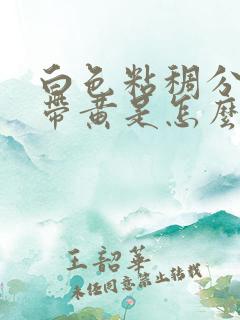 白色粘稠分
带黄是怎麼
王韶華
未经同意禁止转载